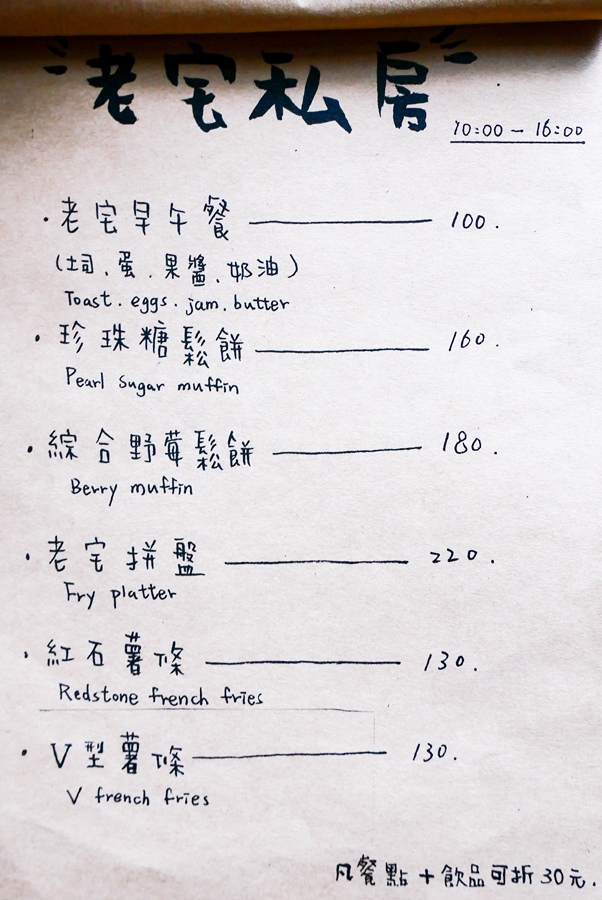 老宅私房
10:00 - 16:00
· 老宅早午餐 100.
(土司、蛋、果醬、奶油)
Toast. eggs. jam. butter
· 珍珠糖鬆餅 160.
Pearl Sugar muffin
· 綜合野莓鬆餅 180.
Berry muffin
· 老宅拼盤 220.
Fry platter
· 紅石薯條 130.
Redstone french fries
· V型薯條 130.
V french fries
凡餐點+飲品可折30元.